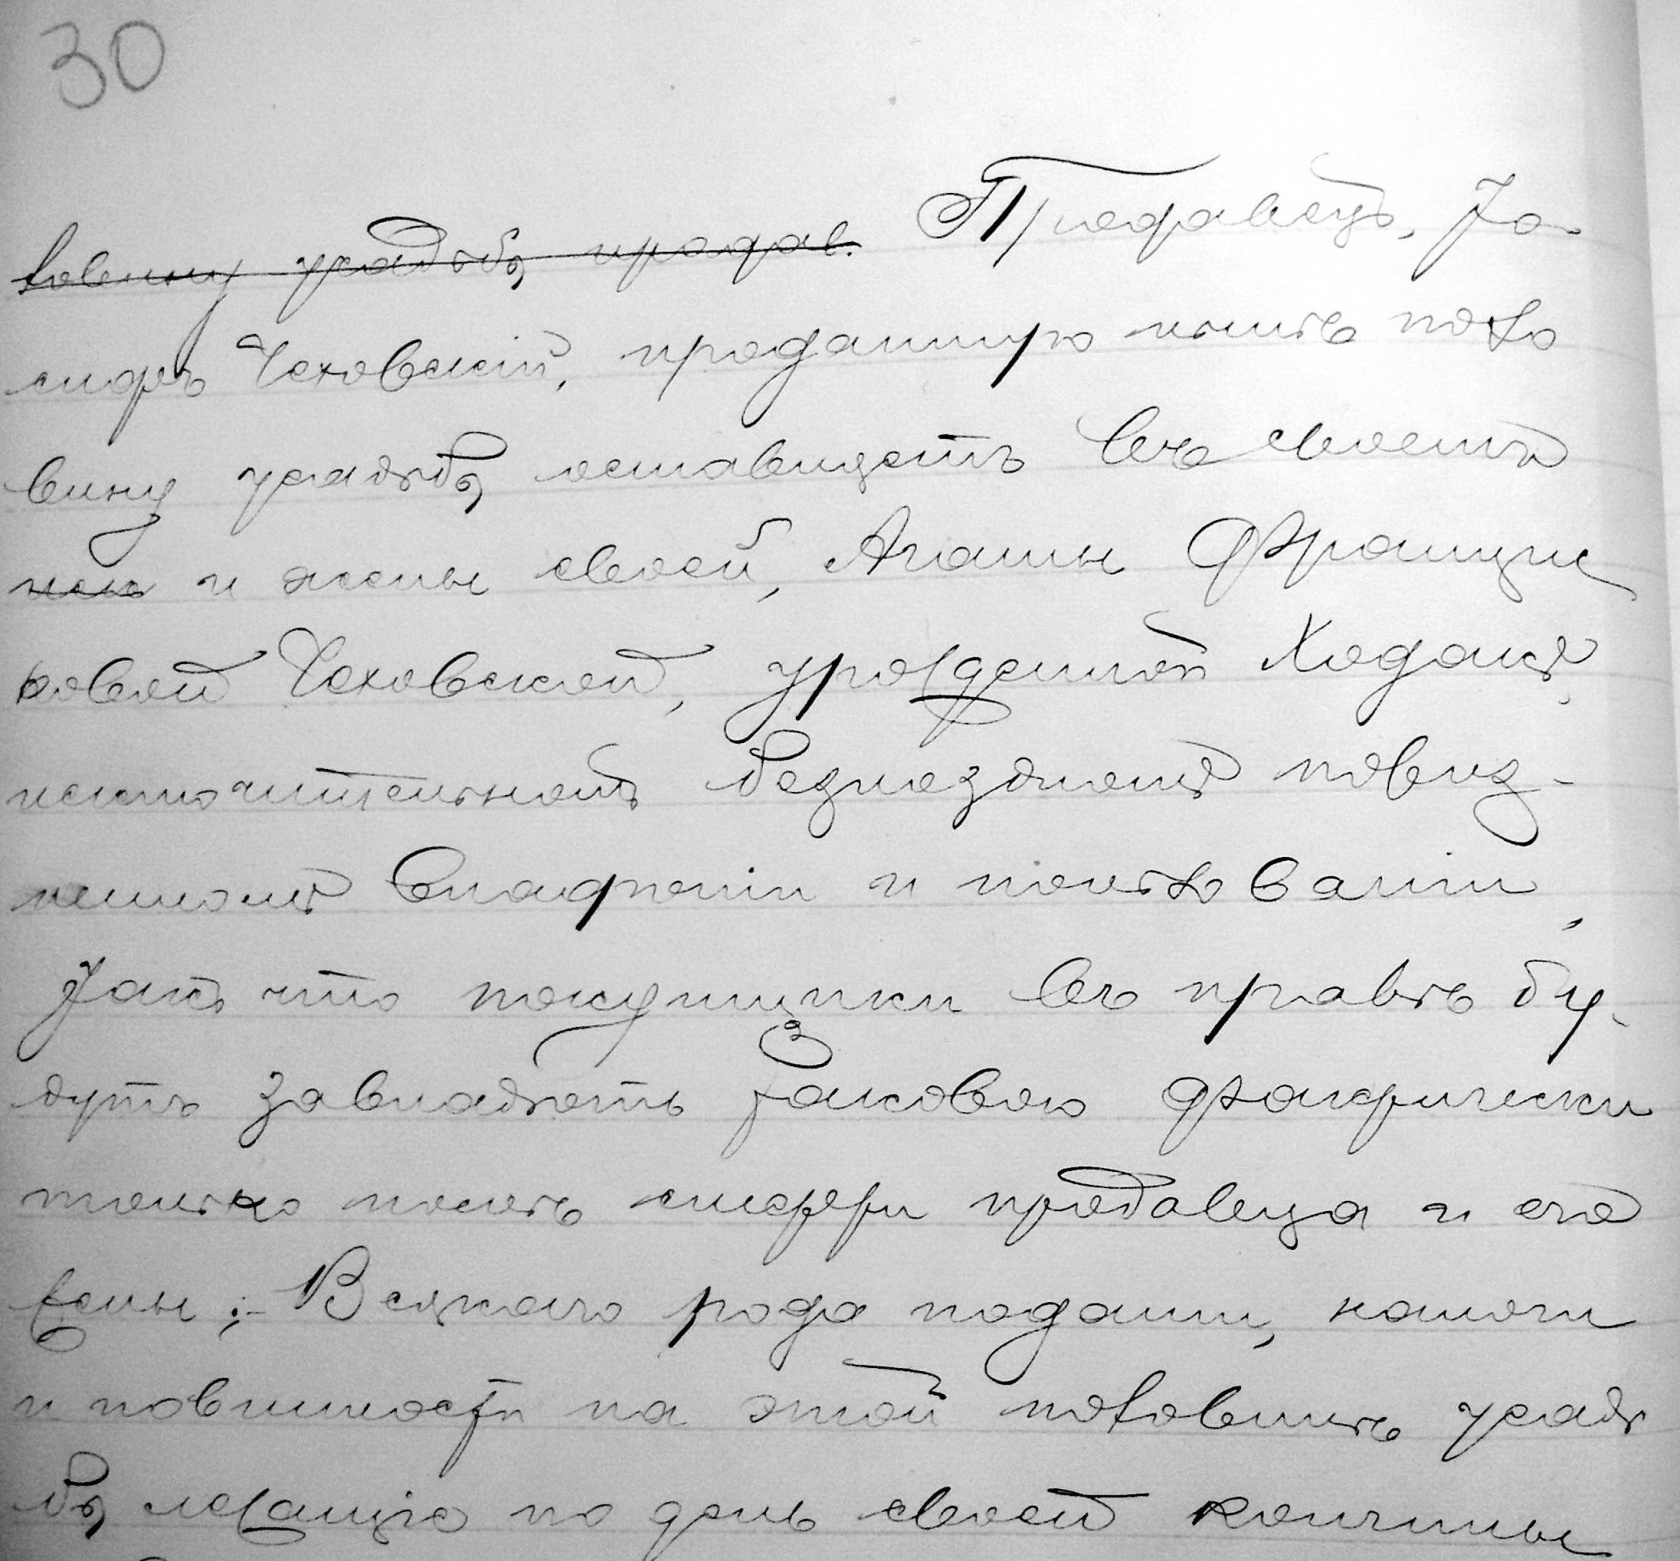 30
ловину усадьбы продав. Продавецъ, Іо-
сифъ Чеховскій, проданную нынѣ поло
вину усадьбы оставляетъ въ своемъ
и жены своей, Агаты Франциш
ковой Чеховской, урожденной Ходакъ,
исключительномъ безмездномъ пожиз-
ненномъ владѣніи и пользованіи,
такъ что покупщики въ правѣ бу-
дутъ завладѣть таковою фактически
только послѣ смерти продавца и его
жены;- Всякаго рода подати, налоги
и повинности на этой половинѣ усадь
бы лежащіе по день своей кончины